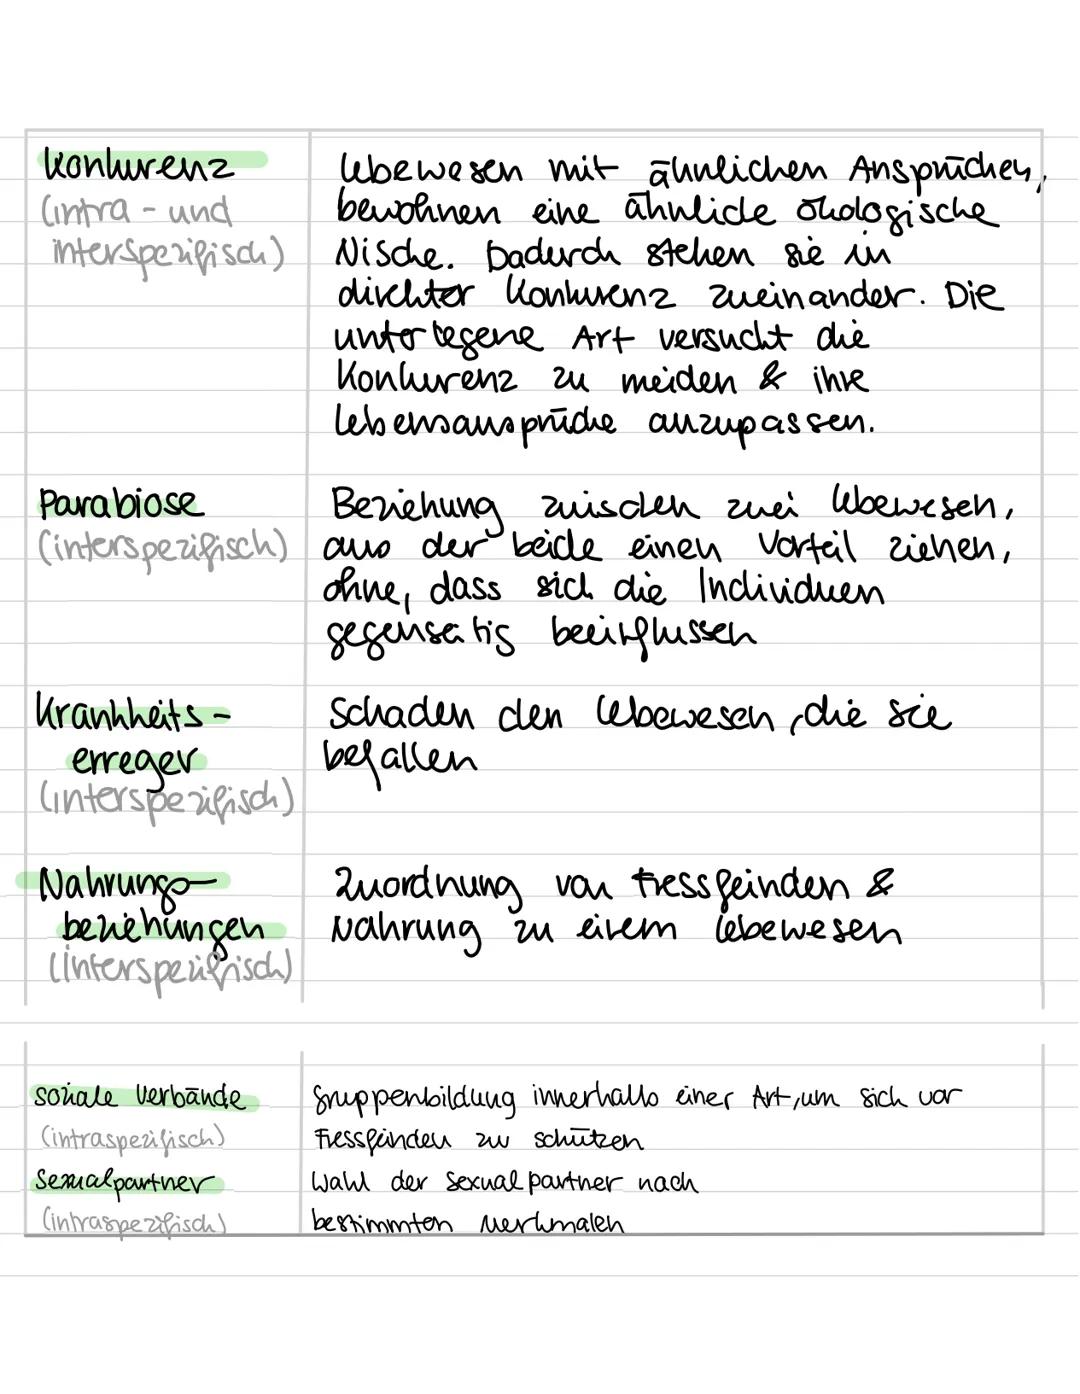 Konkurenz
(intra- und
interspezifisch)
Lebewesen mit ähnlichen Ansprüchen,
bewohnen eine ähnliche ökologische
Nische. Dadurch stehen sie in
direkter Konkurenz zueinander. Die
unterlegene Art versucht die
Konkurenz zu meiden & ihre
Lebensansprüche anzupassen.
Parabiose
(interspezifisch)
Beziehung zwischen zwei Lebewesen,
aus der beide einen Vorteil ziehen,
ohne, dass sich die Individuen
gegenseitig beeinflussen
Krankheits-
erreger
(interspezifisch)
Schaden den Lebewesen, die sie
befallen
Nahrungs-
beziehungen
(interspezifisch)
Zuordnung von Fressfeinden &
Nahrung zu einem Lebewesen
soziale Verbände
(intraspezifisch)
Gruppenbildung innerhalb einer Art, um sich vor
Fressfeinden zu schützen
Sexualpartner
(intraspezifisch)
Wahl der Sexualpartner nach
bestimmten Merkmalen